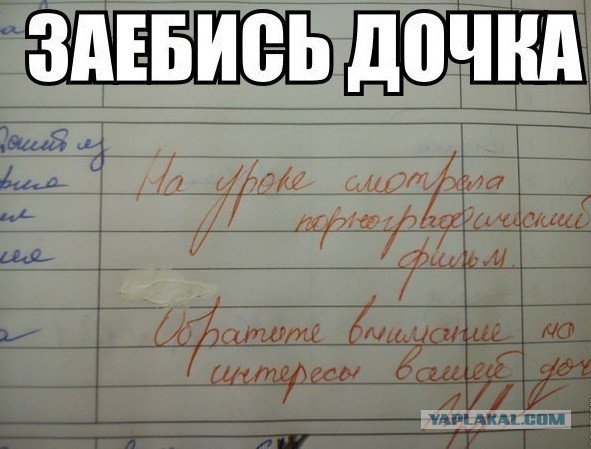 ЗАЕБИСЬ ДОЧКА
На уроке смотрела
порнографический
фильм.
Обратите внимание на
интересы вашей доч
YAPLAKAL.COM